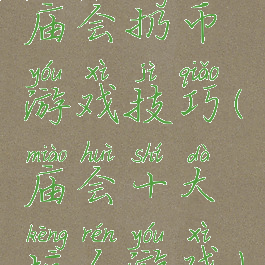 庙会扔币
yóu xì jì qiǎo
游戏技巧(
miào huì shí dà
庙会十大
hēng rén yóu xì
坑人游戏)